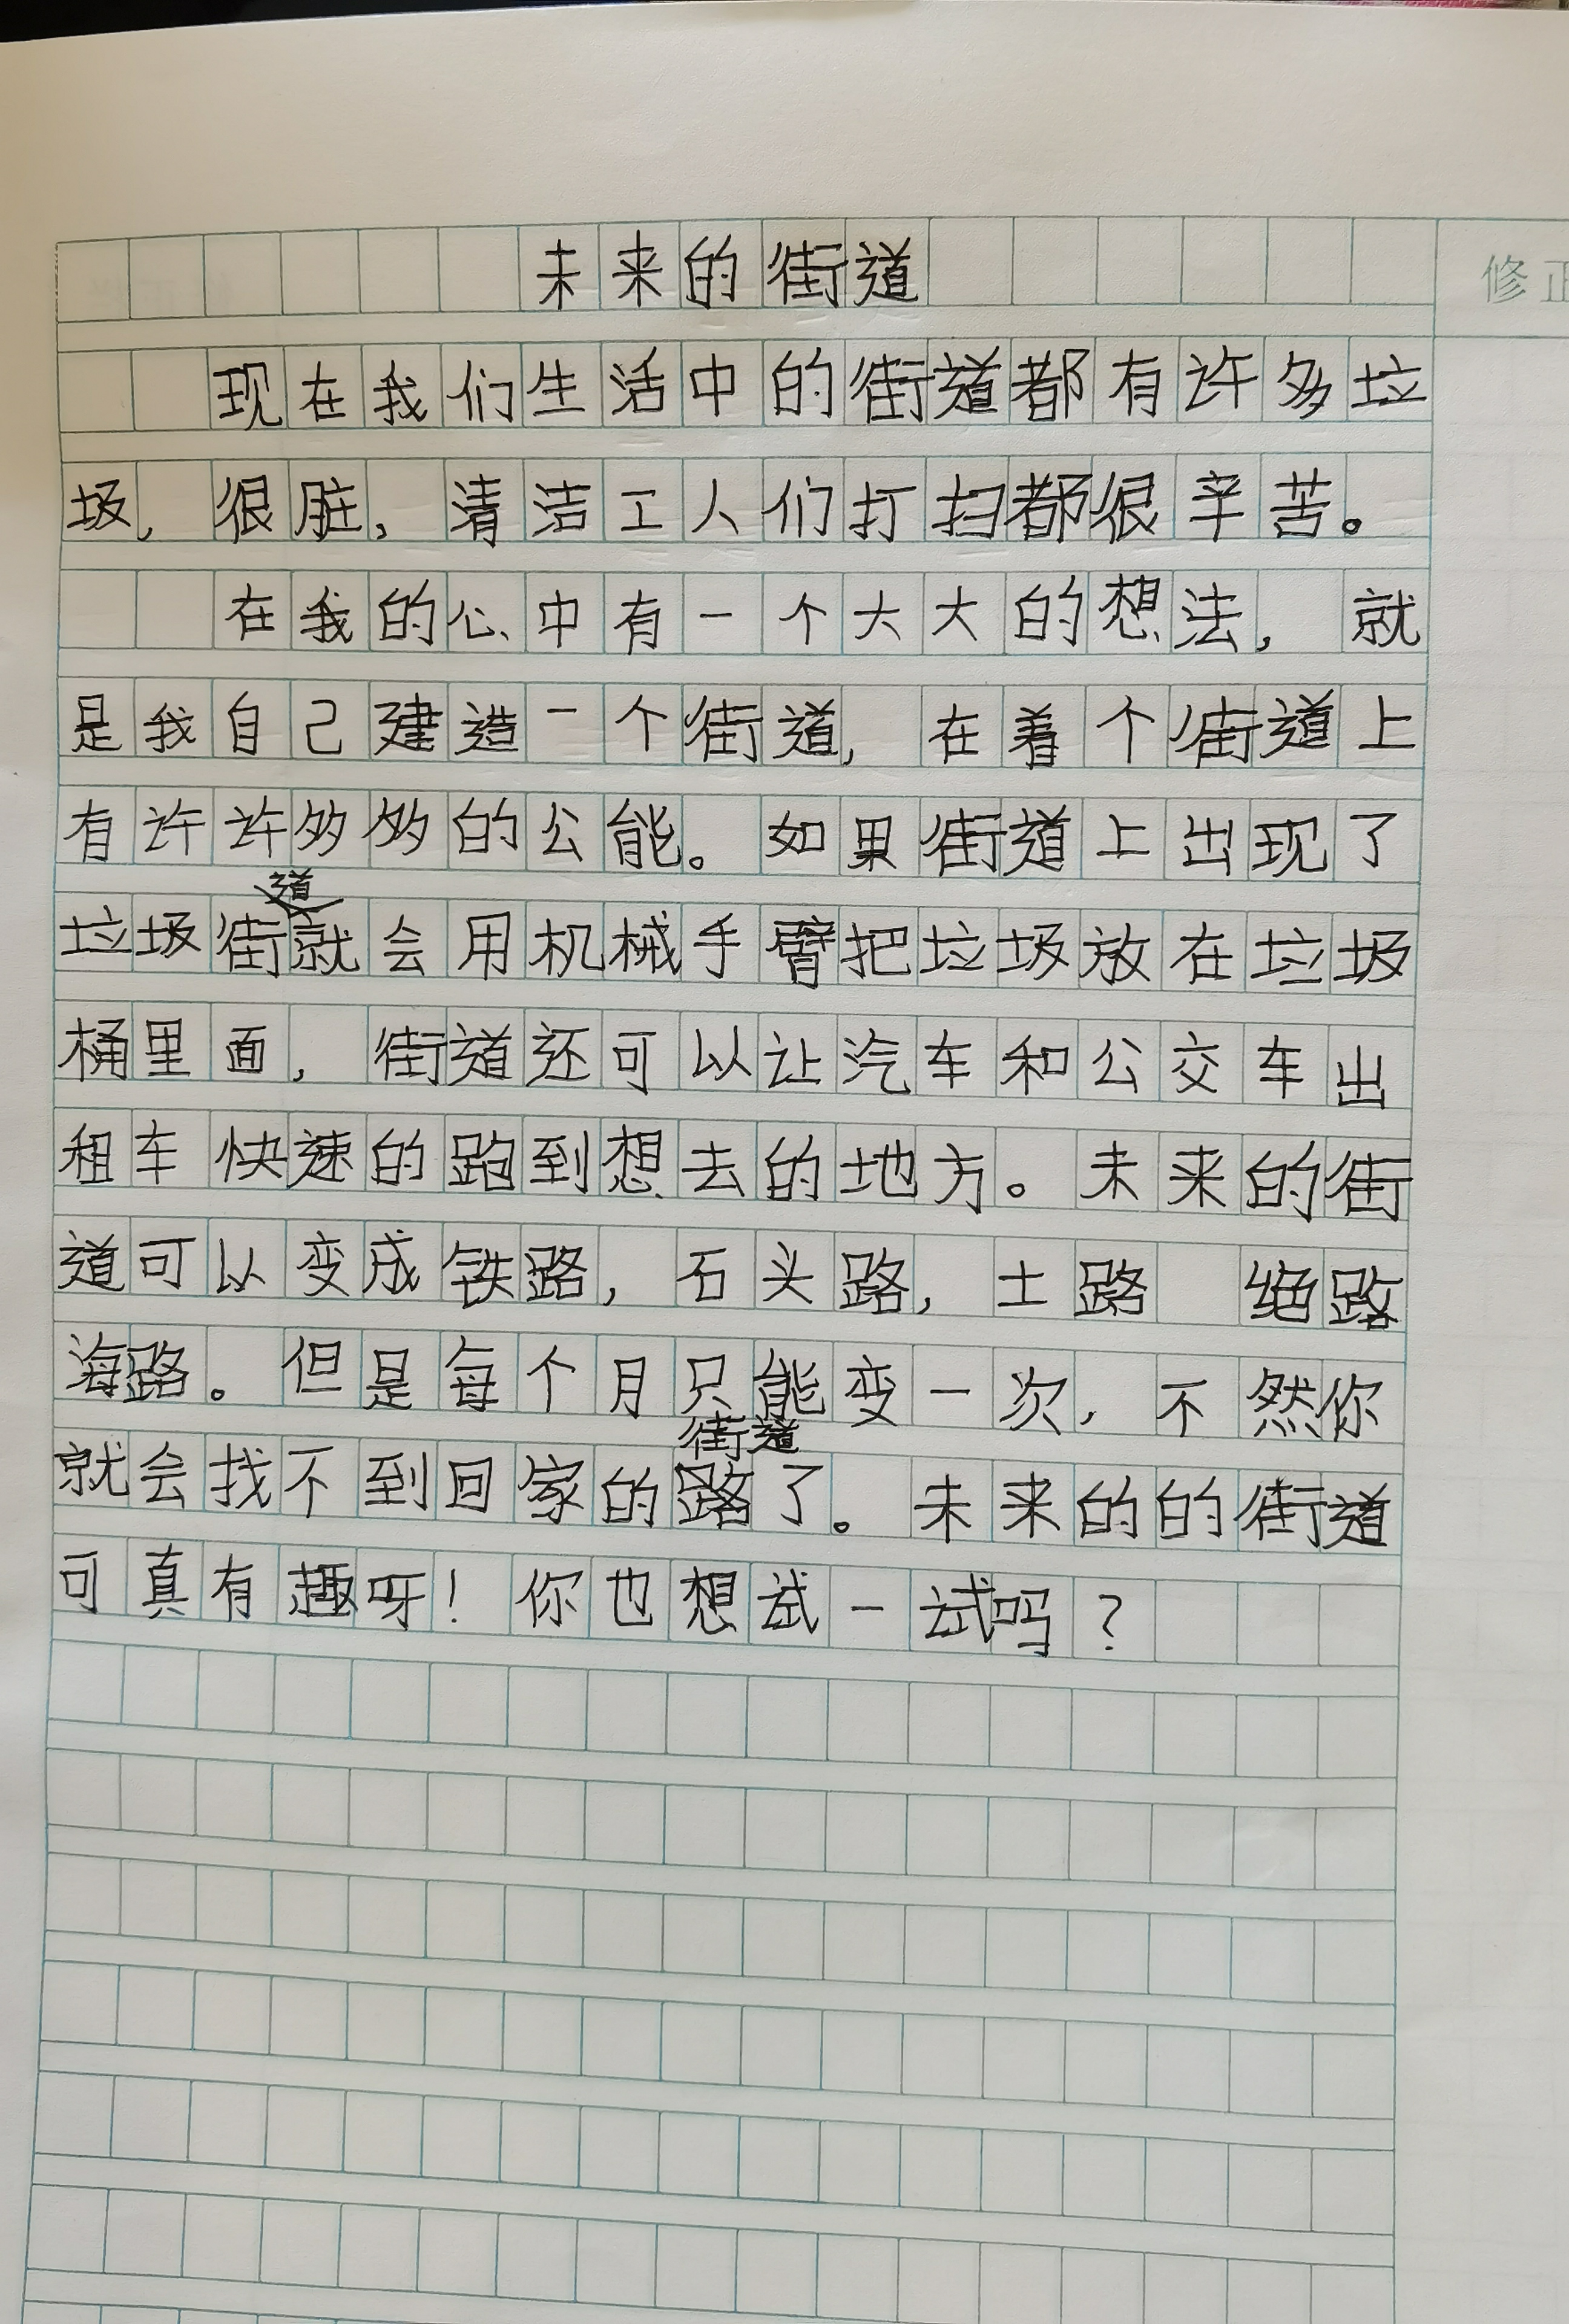 未来的街道
修正
现在我们生活中的街道都有许多垃
圾，很脏，清洁工人们打扫都很辛苦。
在我的心中有一个大大的想法，就
是我自己建造一个街道，在着个街道上
有许许多多的公能。如果街道上出现了
道
垃圾街就会用机械手臂把垃圾放在垃圾
桶里面，街道还可以让汽车和公交车出
租车快速的跑到想去的地方。未来的街
道可以变成铁路，石头路，土路 绝路
海路。但是每个月只能变一次，不然你
街道
就会找不到回家的路了。未来的的街道
可真有趣呀！你也想试一试吗？